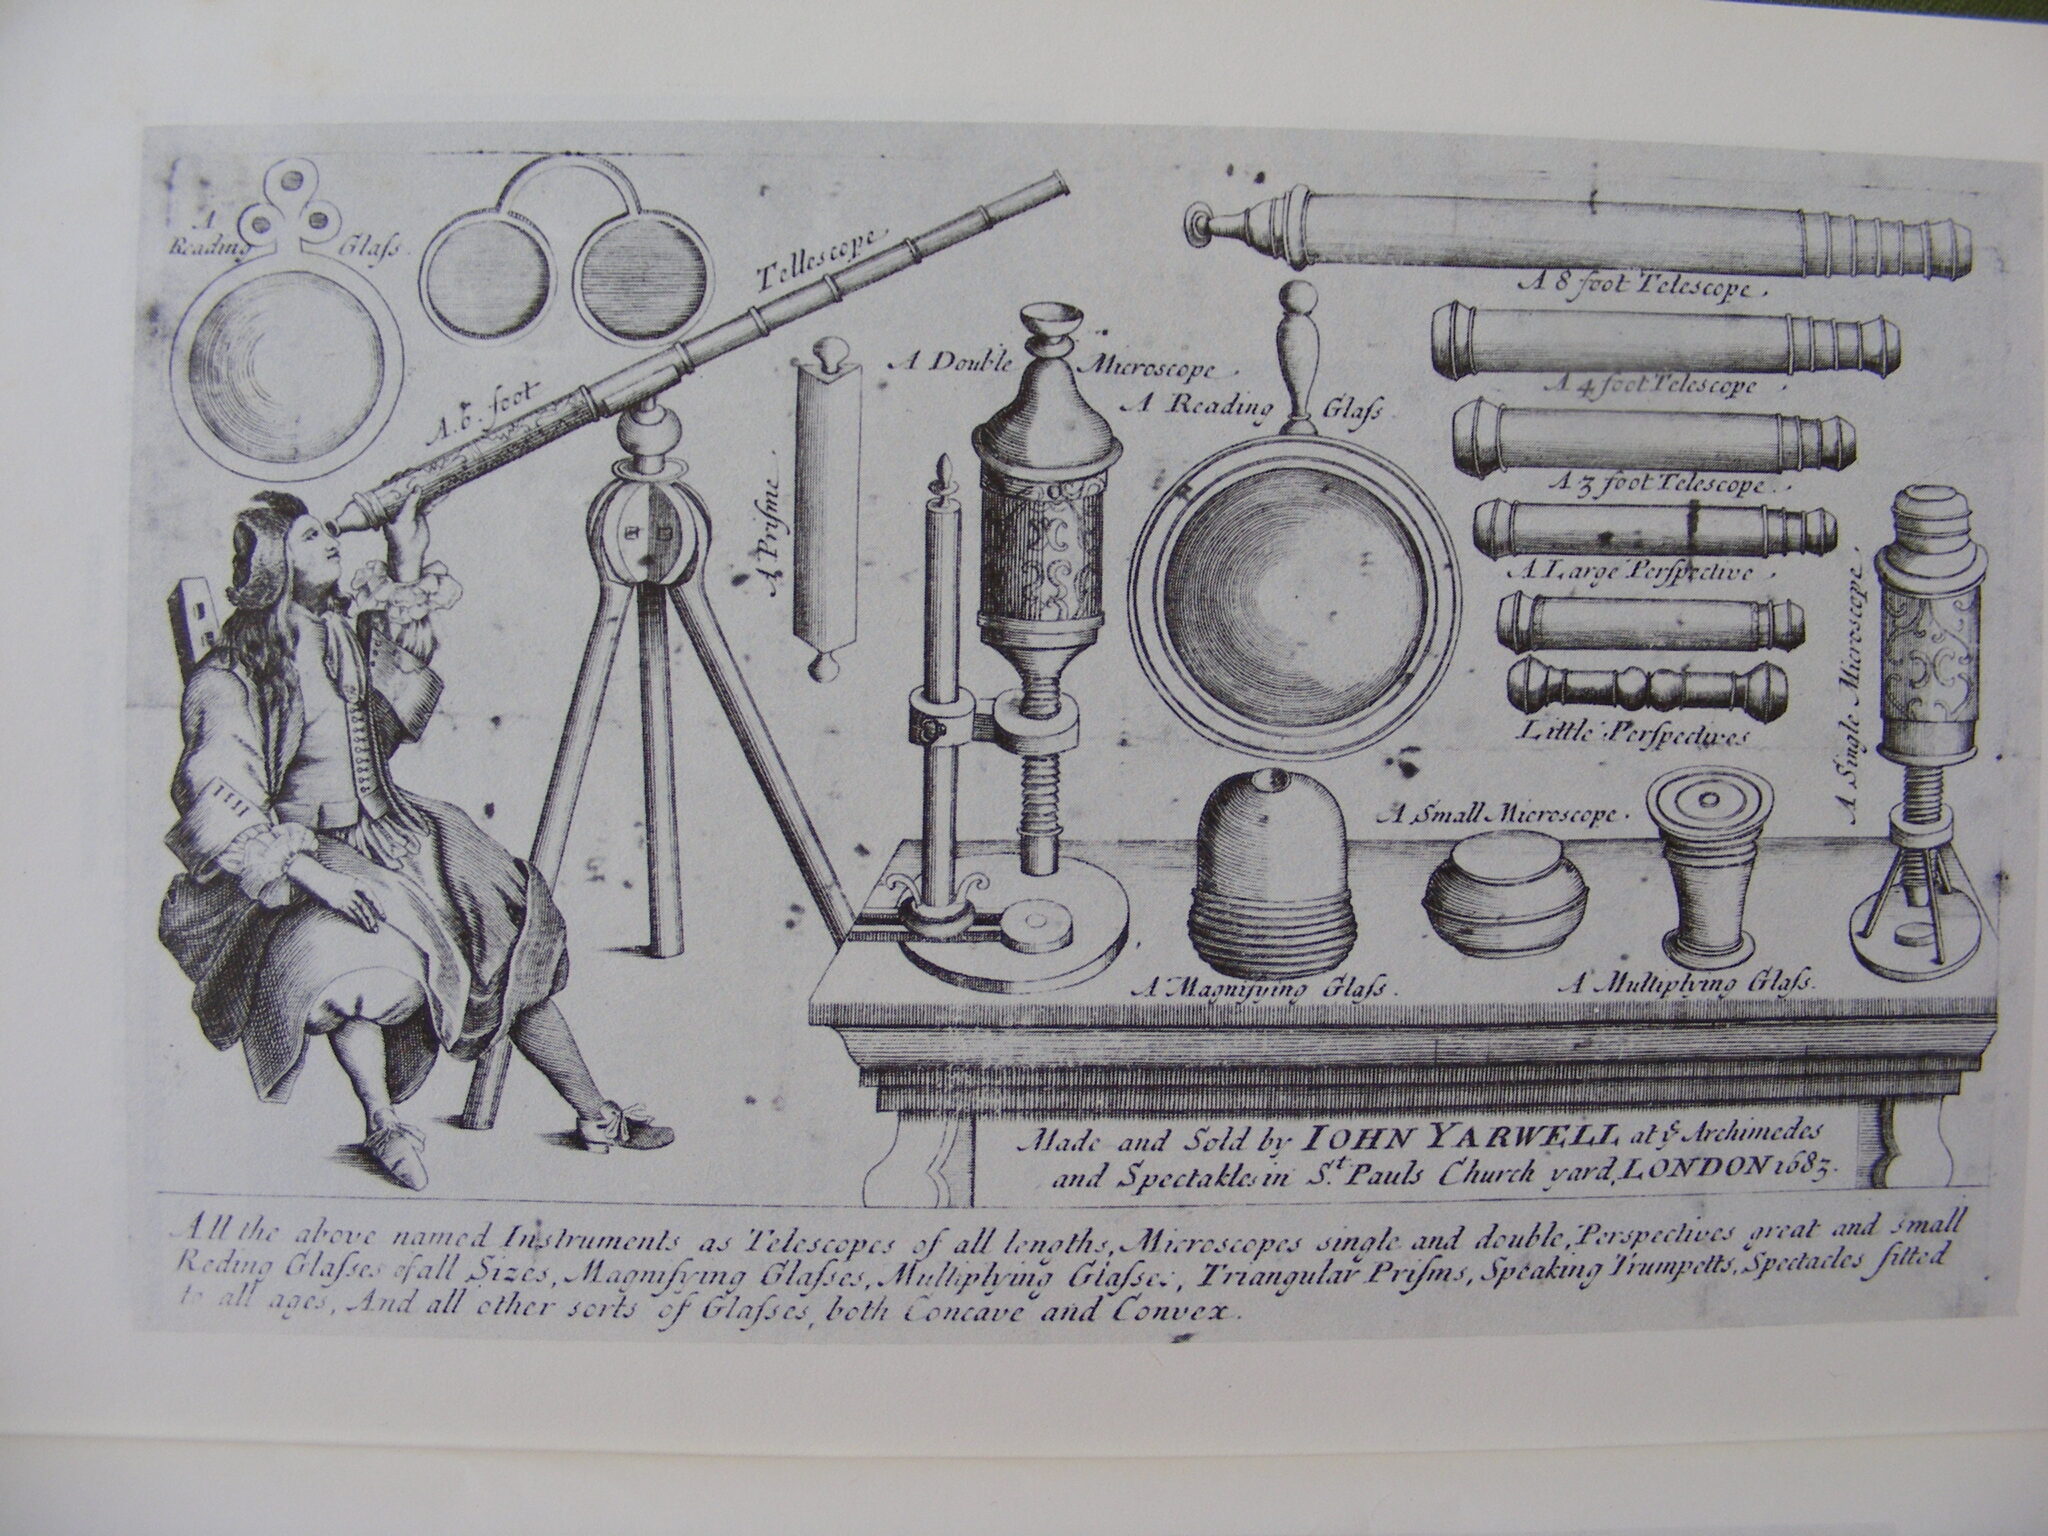 A
Reading Glaſs.
A. 6. foot Tellescope.
A Priſme.
A Double Microscope.
A Reading Glaſs.
A 8 foot Telescope.
A 4 foot Telescope.
A 3 foot Telescope.
A Large Perſpective.
Little Perſpectives
A Single Microscope.
A Small Microscope.
A Magnifying Glaſs.
A Multiplying Glaſs.
Made and Sold by IOHN YARWELL at yͤ Archimedes
and Spectakles in Sᵗ. Pauls Church yard, LONDON 1683.
All the above named Instruments as Telescopes of all lengths, Microscopes single and double, Perspectives great and small
Reding Glaſses of all Sizes, Magnifying Glaſses, Multiplying Glaſses, Triangular Priſms, Speaking Trumpetts, Spectacles fitted
to all ages, And all other sorts of Glaſses, both Concave and Convex.